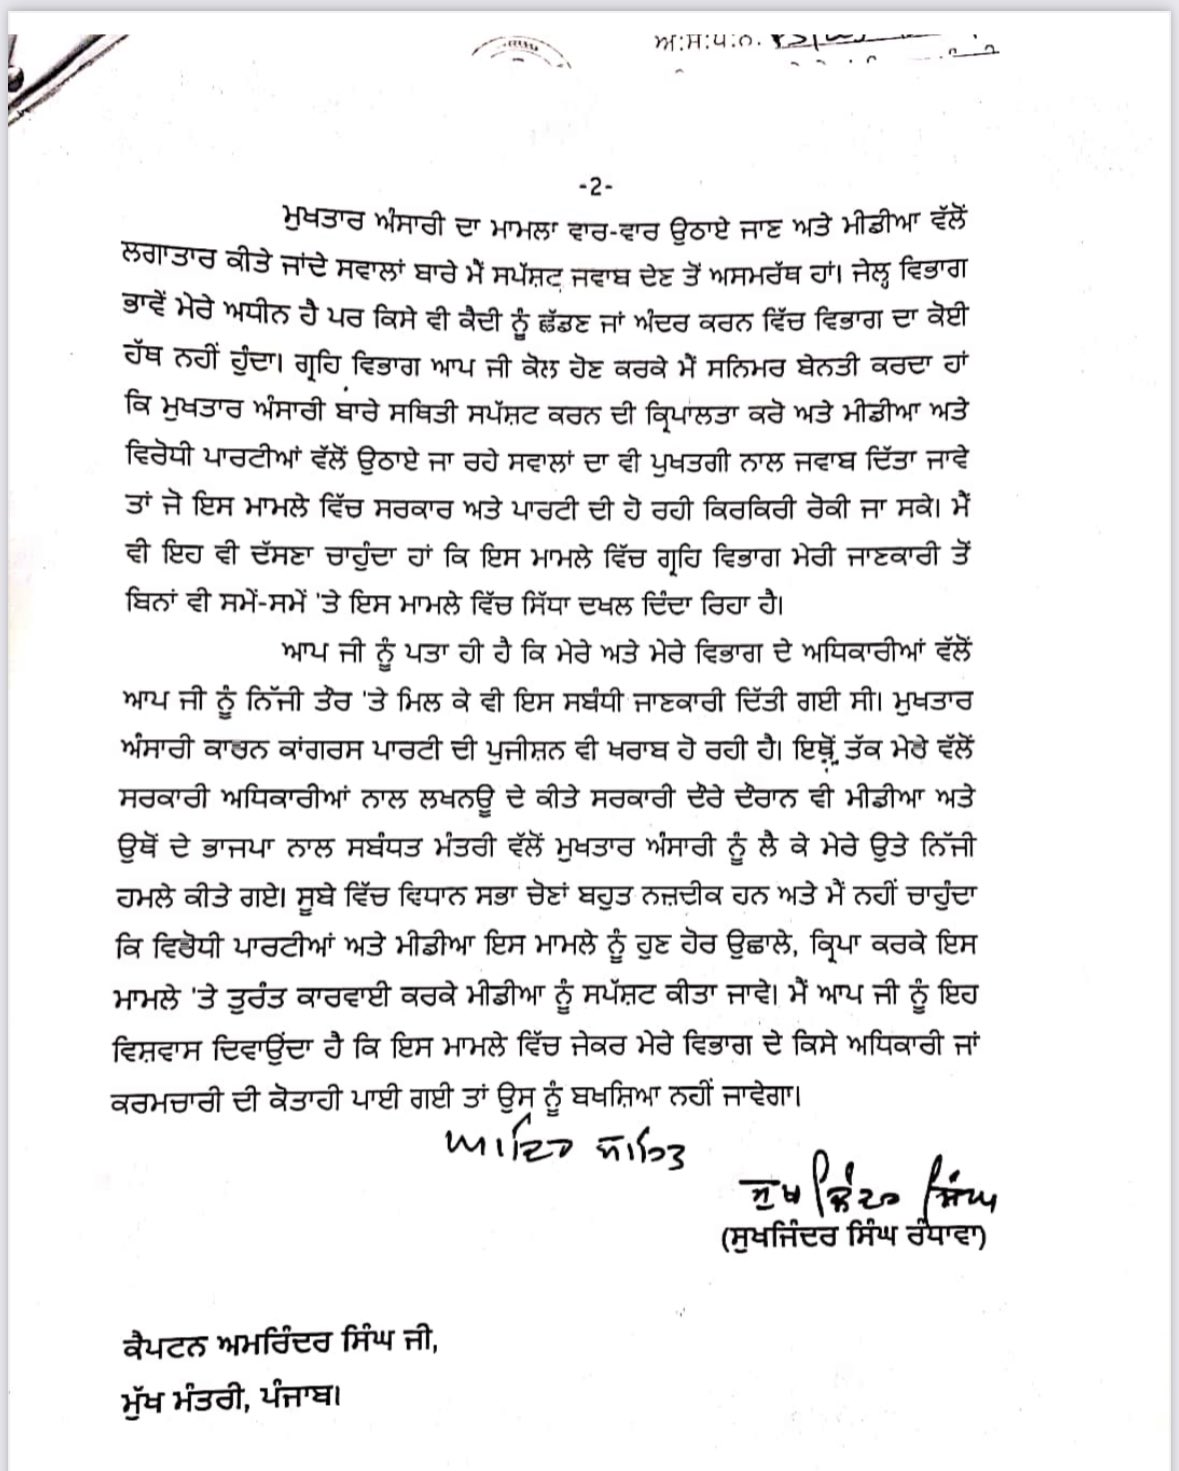 ਅ:ਸ:ਪ:ਨ.
-2-
ਮੁਖਤਾਰ ਅੰਸਾਰੀ ਦਾ ਮਾਮਲਾ ਵਾਰ-ਵਾਰ ਉਠਾਏ ਜਾਣ ਅਤੇ ਮੀਡੀਆ ਵੱਲੋਂ
ਲਗਾਤਾਰ ਕੀਤੇ ਜਾਂਦੇ ਸਵਾਲਾਂ ਬਾਰੇ ਮੈਂ ਸਪੱਸ਼ਟ ਜਵਾਬ ਦੇਣ ਤੋਂ ਅਸਮਰੱਥ ਹਾਂ। ਜੇਲ੍ਹ ਵਿਭਾਗ
ਭਾਵੇਂ ਮੇਰੇ ਅਧੀਨ ਹੈ ਪਰ ਕਿਸੇ ਵੀ ਕੈਦੀ ਨੂੰ ਛੱਡਣ ਜਾਂ ਅੰਦਰ ਕਰਨ ਵਿੱਚ ਵਿਭਾਗ ਦਾ ਕੋਈ
ਹੱਥ ਨਹੀਂ ਹੁੰਦਾ। ਗ੍ਰਹਿ ਵਿਭਾਗ ਆਪ ਜੀ ਕੋਲ ਹੋਣ ਕਰਕੇ ਮੈਂ ਸਨਿਮਰ ਬੇਨਤੀ ਕਰਦਾ ਹਾਂ
ਕਿ ਮੁਖਤਾਰ ਅੰਸਾਰੀ ਬਾਰੇ ਸਥਿਤੀ ਸਪੱਸ਼ਟ ਕਰਨ ਦੀ ਕ੍ਰਿਪਾਲਤਾ ਕਰੋ ਅਤੇ ਮੀਡੀਆ ਅਤੇ
ਵਿਰੋਧੀ ਪਾਰਟੀਆਂ ਵੱਲੋਂ ਉਠਾਏ ਜਾ ਰਹੇ ਸਵਾਲਾਂ ਦਾ ਵੀ ਪੁਖਤਗੀ ਨਾਲ ਜਵਾਬ ਦਿੱਤਾ ਜਾਵੇ
ਤਾਂ ਜੋ ਇਸ ਮਾਮਲੇ ਵਿੱਚ ਸਰਕਾਰ ਅਤੇ ਪਾਰਟੀ ਦੀ ਹੋ ਰਹੀ ਕਿਰਕਿਰੀ ਰੋਕੀ ਜਾ ਸਕੇ। ਮੈਂ
ਵੀ ਇਹ ਵੀ ਦੱਸਣਾ ਚਾਹੁੰਦਾ ਹਾਂ ਕਿ ਇਸ ਮਾਮਲੇ ਵਿੱਚ ਗ੍ਰਹਿ ਵਿਭਾਗ ਮੇਰੀ ਜਾਣਕਾਰੀ ਤੋਂ
ਬਿਨਾਂ ਵੀ ਸਮੇਂ-ਸਮੇਂ 'ਤੇ ਇਸ ਮਾਮਲੇ ਵਿੱਚ ਸਿੱਧਾ ਦਖਲ ਦਿੰਦਾ ਰਿਹਾ ਹੈ।
ਆਪ ਜੀ ਨੂੰ ਪਤਾ ਹੀ ਹੈ ਕਿ ਮੇਰੇ ਅਤੇ ਮੇਰੇ ਵਿਭਾਗ ਦੇ ਅਧਿਕਾਰੀਆਂ ਵੱਲੋਂ
ਆਪ ਜੀ ਨੂੰ ਨਿੱਜੀ ਤੌਰ 'ਤੇ ਮਿਲ ਕੇ ਵੀ ਇਸ ਸਬੰਧੀ ਜਾਣਕਾਰੀ ਦਿੱਤੀ ਗਈ ਸੀ। ਮੁਖਤਾਰ
ਅੰਸਾਰੀ ਕਾਰਨ ਕਾਂਗਰਸ ਪਾਰਟੀ ਦੀ ਪੁਜੀਸ਼ਨ ਵੀ ਖਰਾਬ ਹੋ ਰਹੀ ਹੈ। ਇਥੋਂ ਤੱਕ ਮੇਰੇ ਵੱਲੋਂ
ਸਰਕਾਰੀ ਅਧਿਕਾਰੀਆਂ ਨਾਲ ਲਖਨਊ ਦੇ ਕੀਤੇ ਸਰਕਾਰੀ ਦੌਰੇ ਦੌਰਾਨ ਵੀ ਮੀਡੀਆ ਅਤੇ
ਉਥੋਂ ਦੇ ਭਾਜਪਾ ਨਾਲ ਸਬੰਧਤ ਮੰਤਰੀ ਵੱਲੋਂ ਮੁਖਤਾਰ ਅੰਸਾਰੀ ਨੂੰ ਲੈ ਕੇ ਮੇਰੇ ਉਤੇ ਨਿੱਜੀ
ਹਮਲੇ ਕੀਤੇ ਗਏ। ਸੂਬੇ ਵਿੱਚ ਵਿਧਾਨ ਸਭਾ ਚੋਣਾਂ ਬਹੁਤ ਨਜ਼ਦੀਕ ਹਨ ਅਤੇ ਮੈਂ ਨਹੀਂ ਚਾਹੁੰਦਾ
ਕਿ ਵਿਰੋਧੀ ਪਾਰਟੀਆਂ ਅਤੇ ਮੀਡੀਆ ਇਸ ਮਾਮਲੇ ਨੂੰ ਹੁਣ ਹੋਰ ਉਛਾਲੇ, ਕ੍ਰਿਪਾ ਕਰਕੇ ਇਸ
ਮਾਮਲੇ 'ਤੇ ਤੁਰੰਤ ਕਾਰਵਾਈ ਕਰਕੇ ਮੀਡੀਆ ਨੂੰ ਸਪੱਸ਼ਟ ਕੀਤਾ ਜਾਵੇ। ਮੈਂ ਆਪ ਜੀ ਨੂੰ ਇਹ
ਵਿਸ਼ਵਾਸ ਦਿਵਾਉਂਦਾ ਹੈ ਕਿ ਇਸ ਮਾਮਲੇ ਵਿੱਚ ਜੇਕਰ ਮੇਰੇ ਵਿਭਾਗ ਦੇ ਕਿਸੇ ਅਧਿਕਾਰੀ ਜਾਂ
ਕਰਮਚਾਰੀ ਦੀ ਕੋਤਾਹੀ ਪਾਈ ਗਈ ਤਾਂ ਉਸ ਨੂੰ ਬਖਸ਼ਿਆ ਨਹੀਂ ਜਾਵੇਗਾ।
ਆਦਰ ਸਹਿਤ
ਸੁਖਜਿੰਦਰ ਸਿੰਘ
(ਸੁਖਜਿੰਦਰ ਸਿੰਘ ਰੰਧਾਵਾ)
ਕੈਪਟਨ ਅਮਰਿੰਦਰ ਸਿੰਘ ਜੀ,
ਮੁੱਖ ਮੰਤਰੀ, ਪੰਜਾਬ।